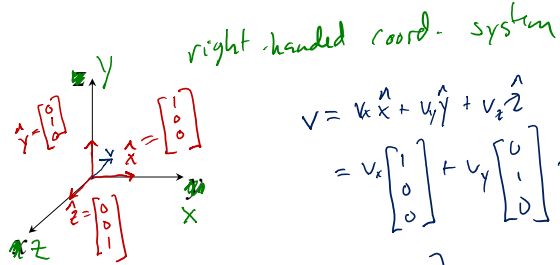 right-handed coord. system
y
ŷ = [0 1 0]
v
x̂ = [1 0 0]
x
ẑ = [0 0 1]
z
v = vₓx̂ + v_yŷ + v_zẑ
= vₓ[1 0 0] + v_y[0 1 0]